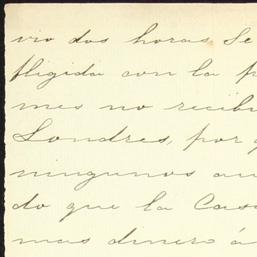 vio dos horas. Se
fligida con la p
mes no recibi
Londres, por q
ningunos au
do que la Casa
mas dinero á